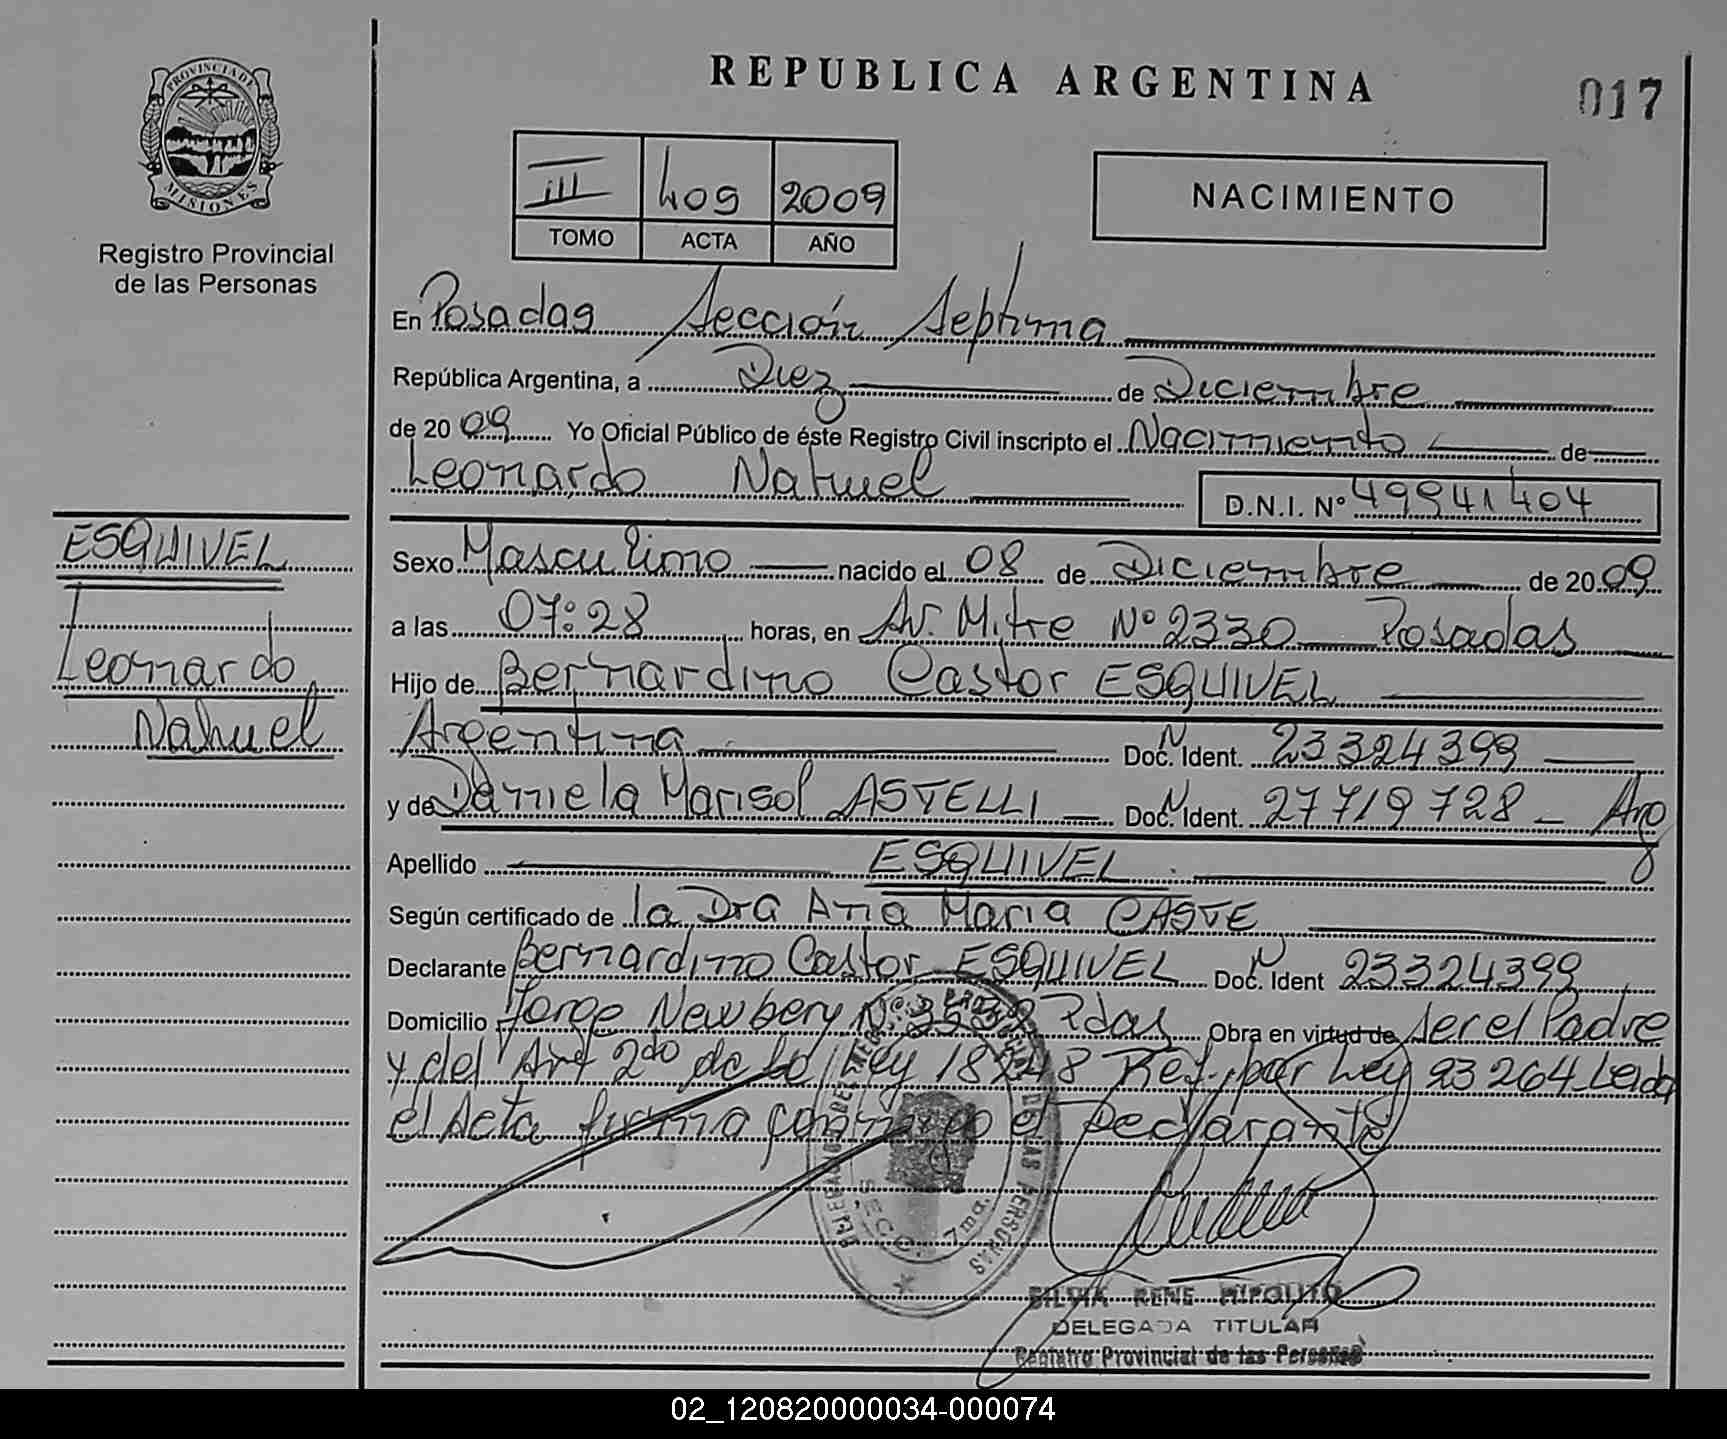 REPUBLICA ARGENTINA
017
PROVINCIA DE
MISIONES
Registro Provincial
de las Personas
III 409 2009
TOMO ACTA AÑO
NACIMIENTO
En Posadas Sección Septima
República Argentina, a Diez de Diciembre
de 20 09 Yo Oficial Público de éste Registro Civil inscripto el Nacimiento de
Leonardo Nahuel D.N.I. Nº 49941404
ESQUIVEL
Leonardo
Nahuel
Sexo Masculino nacido el 08 de Diciembre de 20 09
a las 07:28 horas, en Av. Mitre Nº 2330 Posadas
Hijo de Bernardino Castor ESQUIVEL
Argentina Doc. N Ident. 23324399
y de Daniela Marisol ASTELLI Doc. N Ident. 27719728 - Arg
Apellido ESQUIVEL
Según certificado de la Dra Ana Maria CASTE
Declarante Bernardino Castor ESQUIVEL Doc. N Ident 23324399
Domicilio Jorge Newbery Nº Pdas Obra en virtud de ser el Padre
y del Art 2do de la Ley 18248 Ref. por Ley 23264 Leida
el Acta firma conmigo el Declarante
DE LAS PERSONAS
SECC. 7ma.
SILVIA RENE HIPOLITO
DELEGADA TITULAR
Registro Provincial de las Personas
02_120820000034-000074